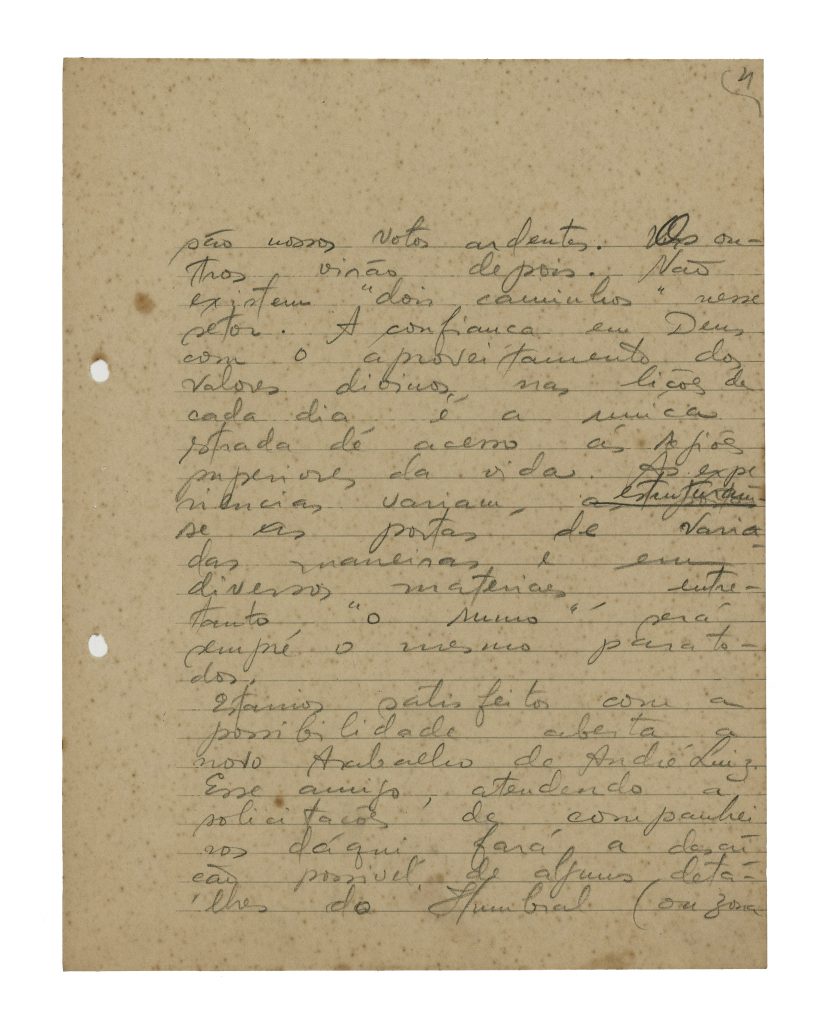 4
são nossos votos ardentes. Os ou-
tros virão depois. Não
existem "dois caminhos" nesse
setor. A confianca em Deus
com o aproveitamento dos
valores divinos, nas lições de
cada dia é a unica
estrada de acesso ás regiões
superiores da vida. As expe
riencias variam, estruturam
se as portas de varia
das maneiras e em
diversos materiaes entre-
tanto "o rumo" será
sempre o mesmo para to-
dos.
Estamos satisfeitos com a
possibilidade aberta a
novo trabalho de André Luiz.
Esse amigo, atendendo a
solicitacões de companhei
ros dáqui, fará a descri
cão possivel, de alguns detá-
lhes do Humbral (ou zona